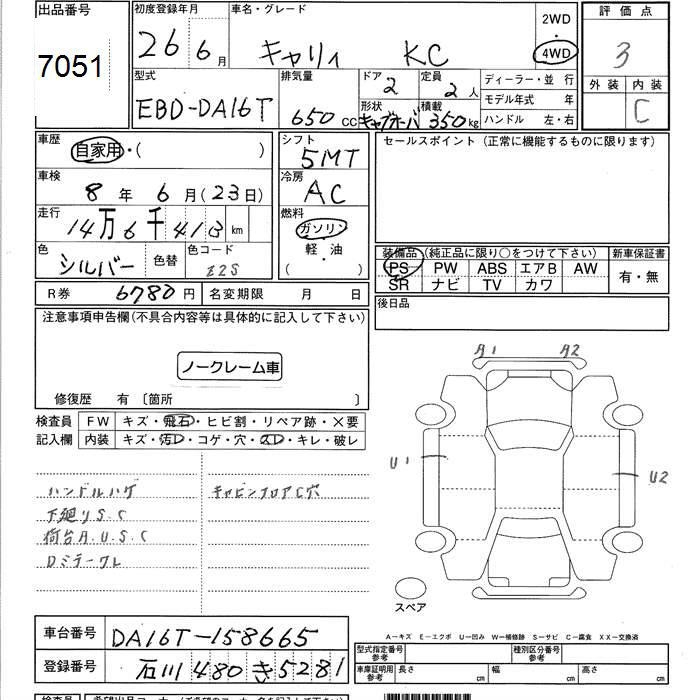 出品番号
7051
初度登録年月
26 6月
車名・グレード
キャリィ KC
2WD
4WD
評価点
3
外装 内装
C
型式
EBD-DA16T
排気量
650cc
ドア 2
定員 2人
形状 キャブオーバ
積載 350kg
ディーラー・並 行
モデル年式 年
ハンドル 左・右
車歴
自家用・( )
車検
8年 6月(23日)
走行
14万6千413km
色
シルバー
色替
色コード
Z2S
シフト
5MT
冷房
AC
燃料
ガソリン
軽・油
( )
セールスポイント (正常に機能するものに限ります)
装備品 (純正品に限り○をつけて下さい)
PS PW ABS エアB AW
SR ナビ TV カワ
新車保証書
有・無
R券 6780円
名変期限 月 日
後日品
注意事項申告欄(不具合内容等は具体的に記入して下さい)
ノークレーム車
修復歴 有 〔箇所 〕
検査員
記入欄
FW キズ・飛石・ヒビ割・リペア跡・×要
内装 キズ・汚レ・コゲ・穴・スレ・キレ・破レ
ハンドルハゲ
下廻りS.C
荷台A.U.S.C
Dミラーワレ
キャビンフロアC穴
A1 A2
U1
U2
スペア
A-キズ E-エクボ U-凹み W-補修跡 S-サビ C-腐食 XX-交換済
車台番号
DA16T-158665
登録番号
石川 480 き 5281
型式指定番号
参考
種別区分番号
参考
車庫証明用
参考
長さ cm
幅 cm
高さ cm